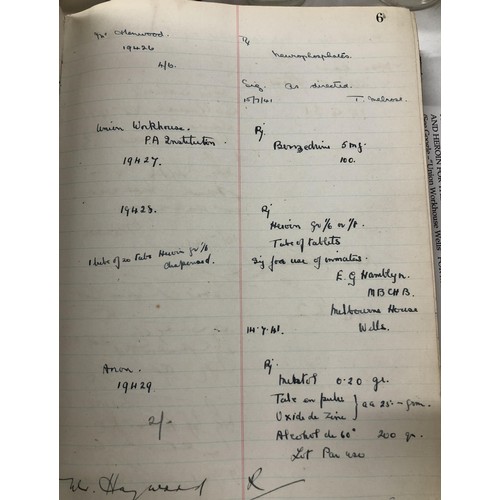 6
Henwood
19426
4/6.
Rj
Neurophosphates.
Sig. As directed.
15/7/41 T. Melrose.
Union Workhouse.
P.A. Institution
19427.
Rj
Benzedrine 5 mg.
100.
19428.
1 tube of 20 tabs Heroin gr 1/6
dispensed.
Rj
Heroin gr 1/6 or 1/8.
Tube of tablets
Sig for use of inmates.
E. G Hamblyn.
M B CH B.
Melbourne House
14.7.41. Wells.
Anon.
19429
2/-
Rj
0.20 gr.
Talc en pulv
Oxide de Zinc
aa 25 - grm.
Alcohol de 60° 200 gr.
W. Haywood R
AND HEROIN FOR
"Union Workhouse Wells"